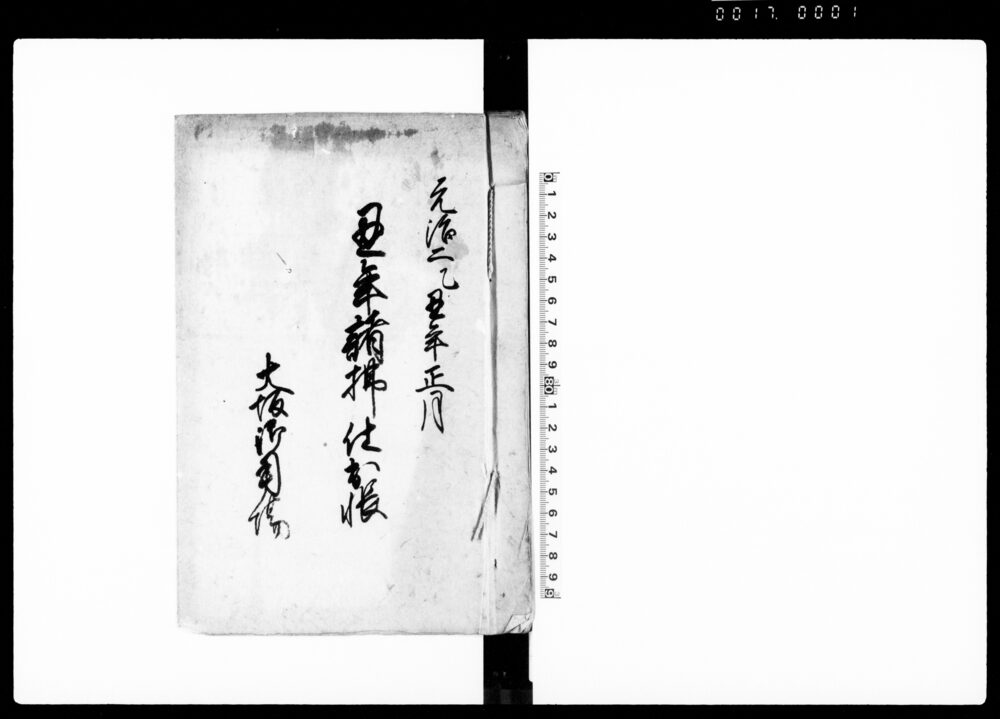 0017. 0001
元治二乙丑年正月
丑年諸拂仕出帳
大坂御用場
0 1 2 3 4 5 6 7 8 9 80 1 2 3 4 5 6 7 8 9